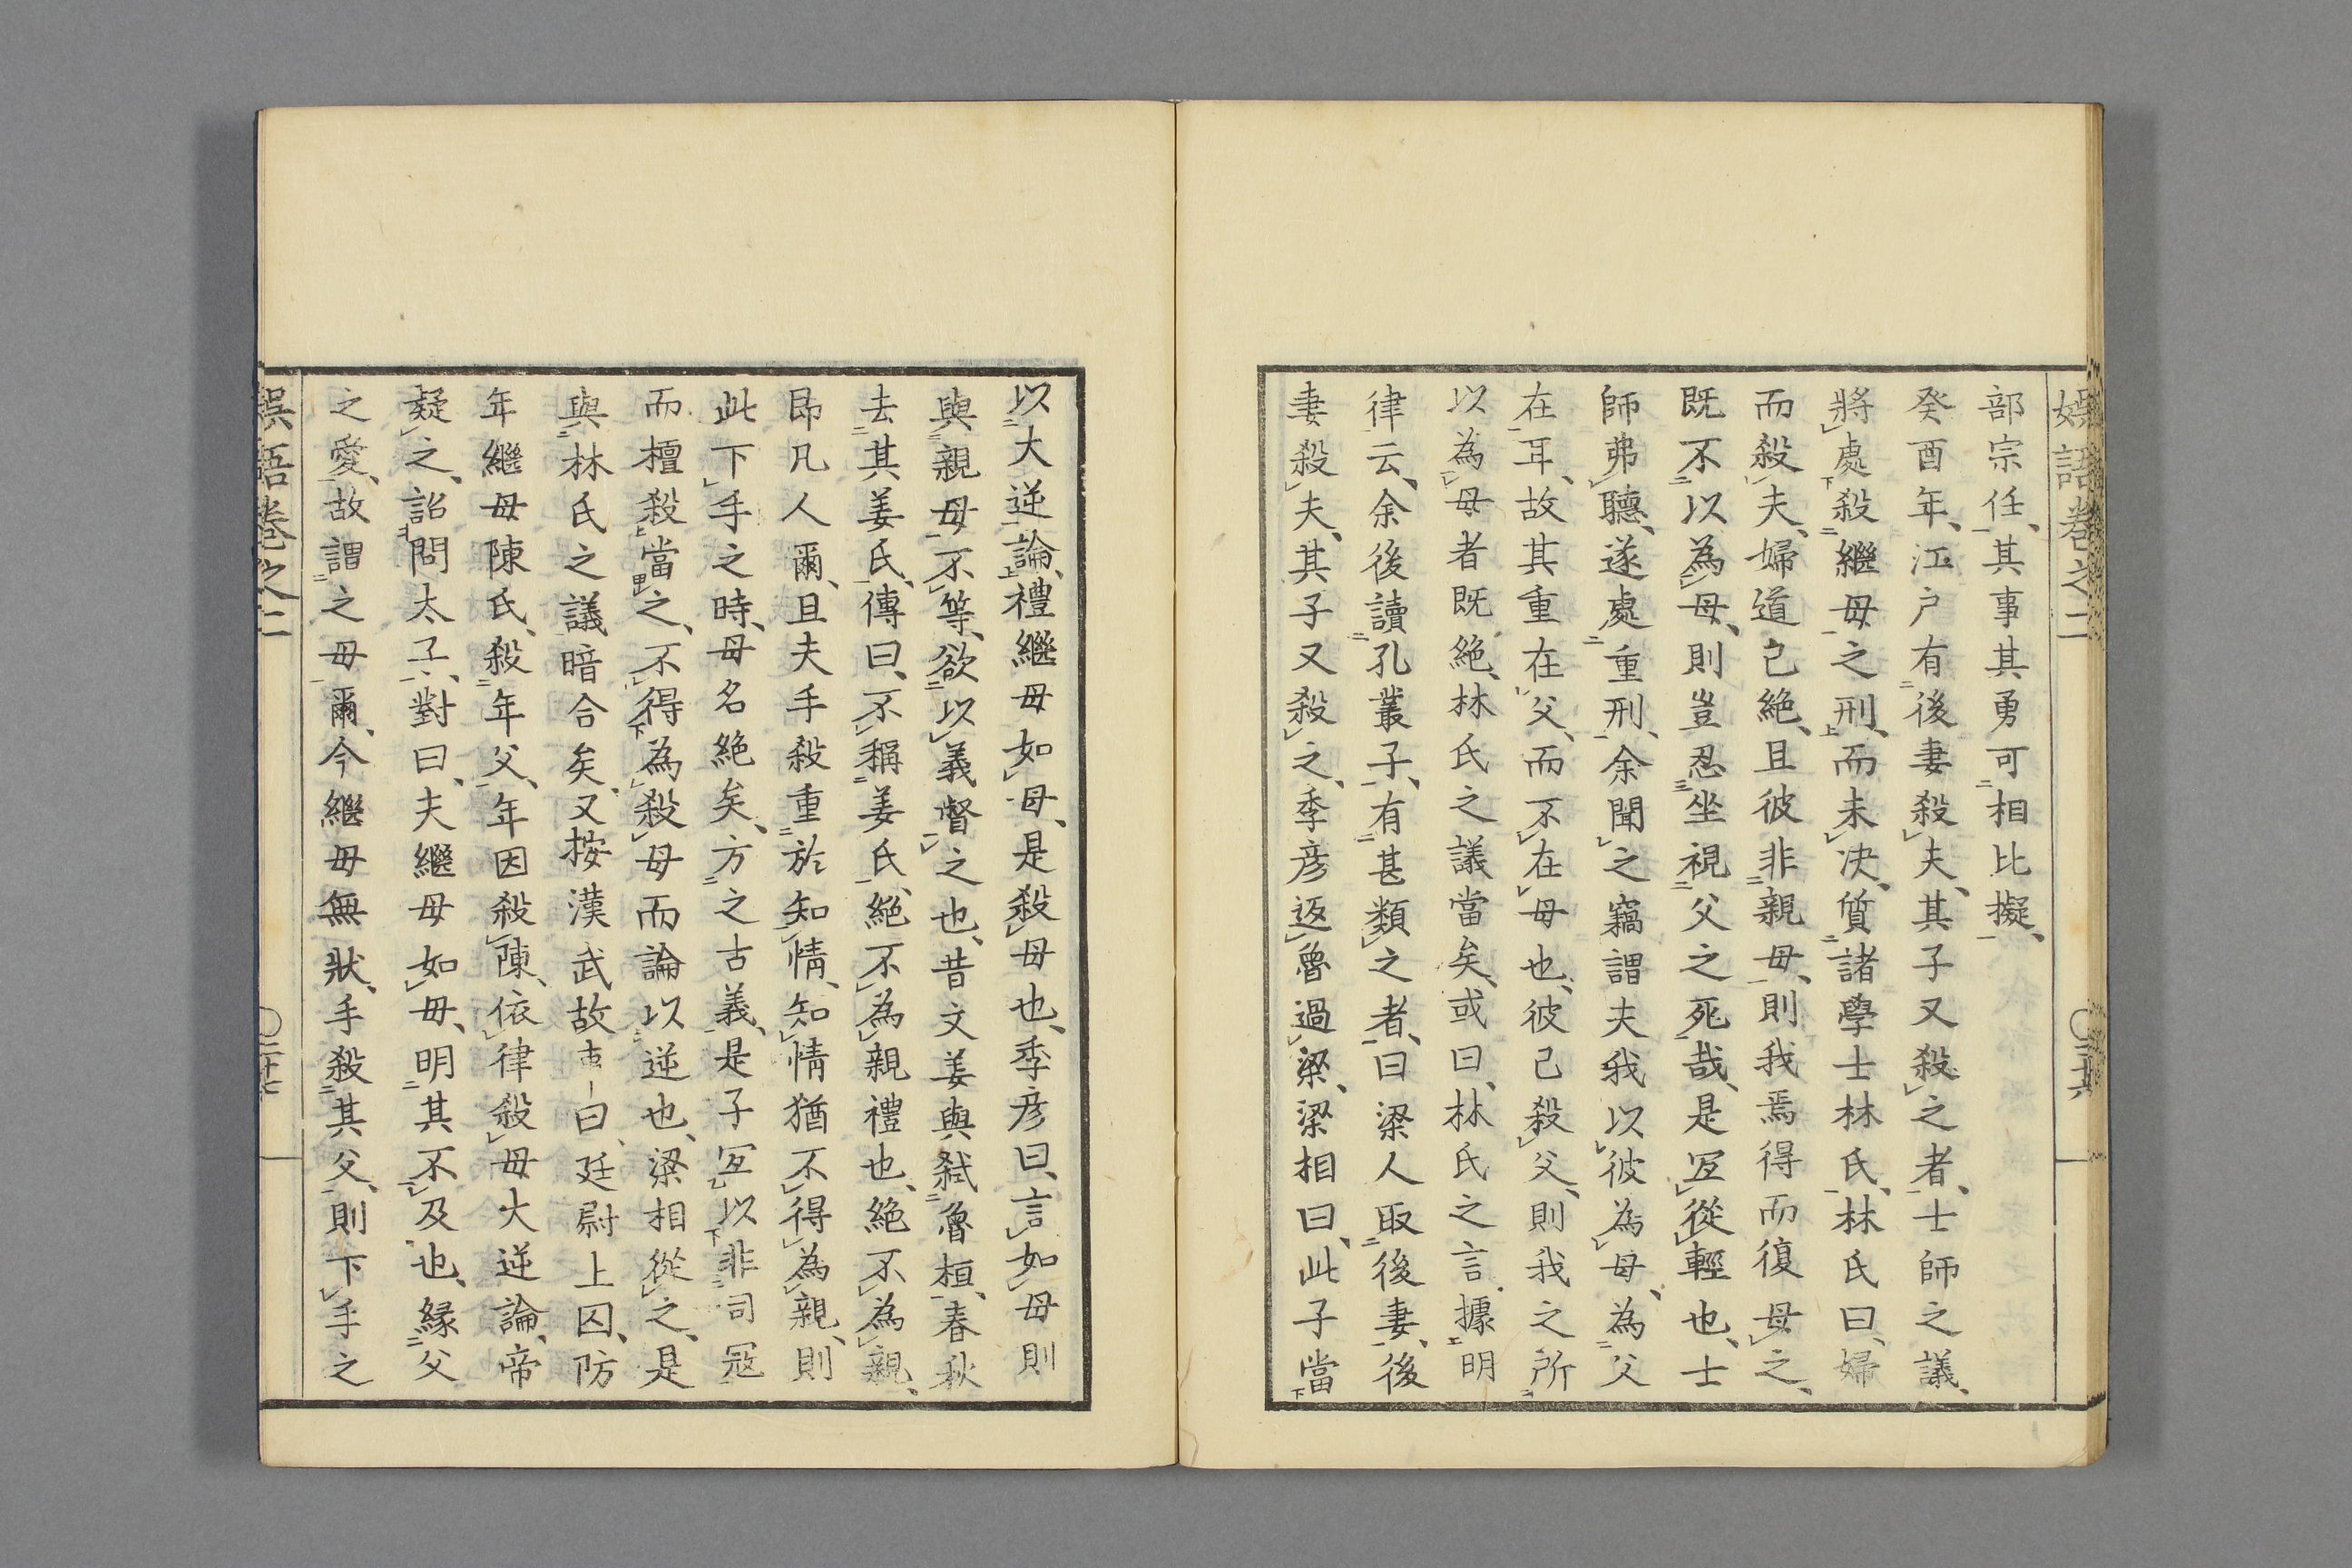 語卷之二
部宗任、其事其勇可相比擬、
癸酉年、江户有後妻殺夫、其子又殺之者、士師之議、
將處殺繼母之刑、而未决、質諸學士林氏、林氏曰、婦
而殺夫、婦道已絶、且彼非親母、則我焉得而復母之、
既不以為母、則豈忍坐視父之死哉、是宐從輕也、士
師弗聽、遂處重刑、余聞之竊謂夫我以彼為母、為父
在耳、故其重在父、而不在母也、彼已殺父、則我之所
以為母者既絶、林氏之議當矣、或曰、林氏之言、據明
律云、余後讀孔叢子、有甚類之者、曰梁人取後妻、後
妻殺夫、其子又殺之、季彦返魯過梁、梁相曰、此子當
以大逆論、禮繼母如母、是殺母也、季彦曰、言如母則
與親母不等、欲以義督之也、昔文姜與弑魯桓、春秋
去其姜氏、傳曰、不稱姜氏、絶不為親禮也、絶不為親、
即凡人爾、且夫手殺重於知情、知情猶不得為親、則
此下手之時、母名絶矣、方之古義、是子宐以非司冦
而檀殺當之、不得為殺母而論以逆也、梁相從之、是
與林氏之議暗合矣、又按漢武故事曰、廷尉上囚、防
年繼母陳氏、殺年父、年因殺陳、依律殺母大逆論、帝
疑之、詔問太子、對曰、夫繼母如母、明其不及也、縁父
之愛、故謂之母爾、今繼母無狀、手殺其父、則下手之
語卷之二
二十七